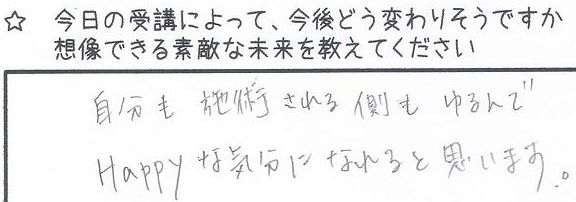 ☆ 今日の受講によって、今後どう変わりそうですか
想像できる素敵な未来を教えてください
自分も施術される側もゆるんで
Happyな気分になれると思います。